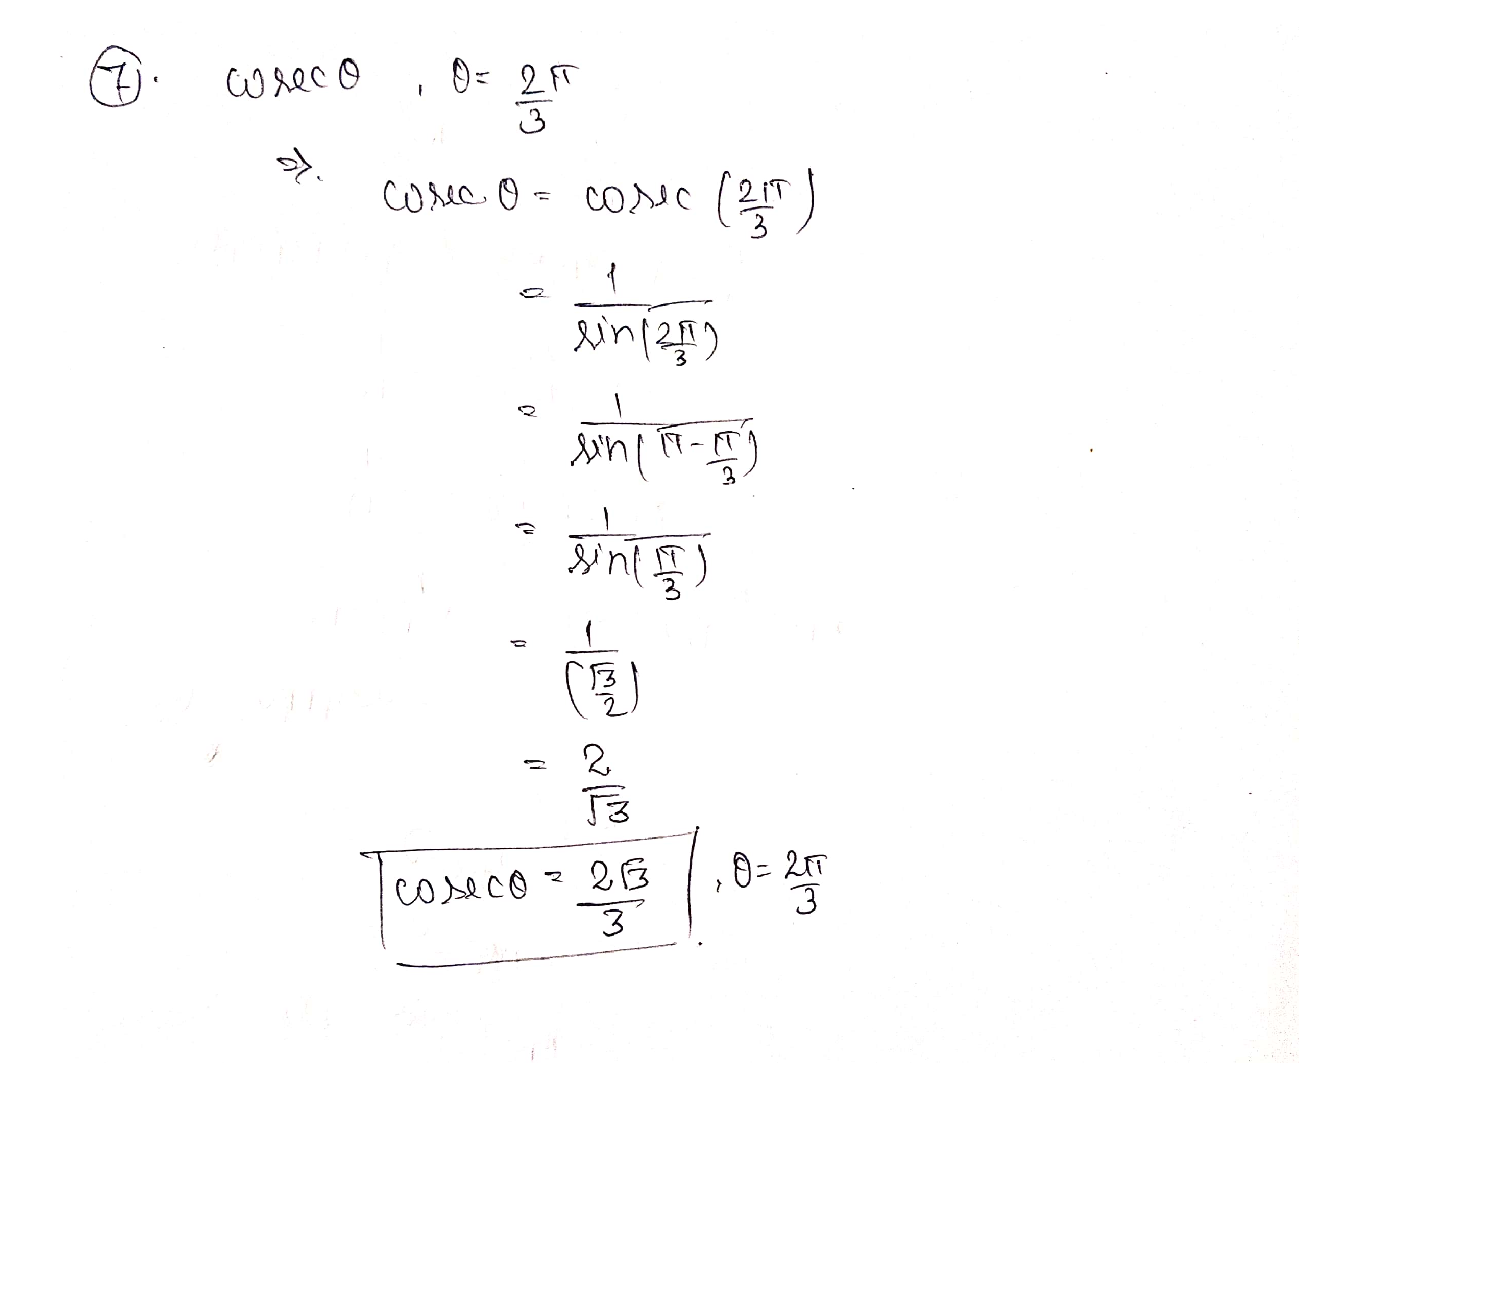 7. cosec θ , θ = 2π/3
⇒. cosec θ = cosec (2π/3)
= 1/sin(2π/3)
= 1/sin(π-π/3)
= 1/sin(π/3)
= 1/(√3/2)
= 2/√3
cosec θ = 2√3/3 , θ = 2π/3